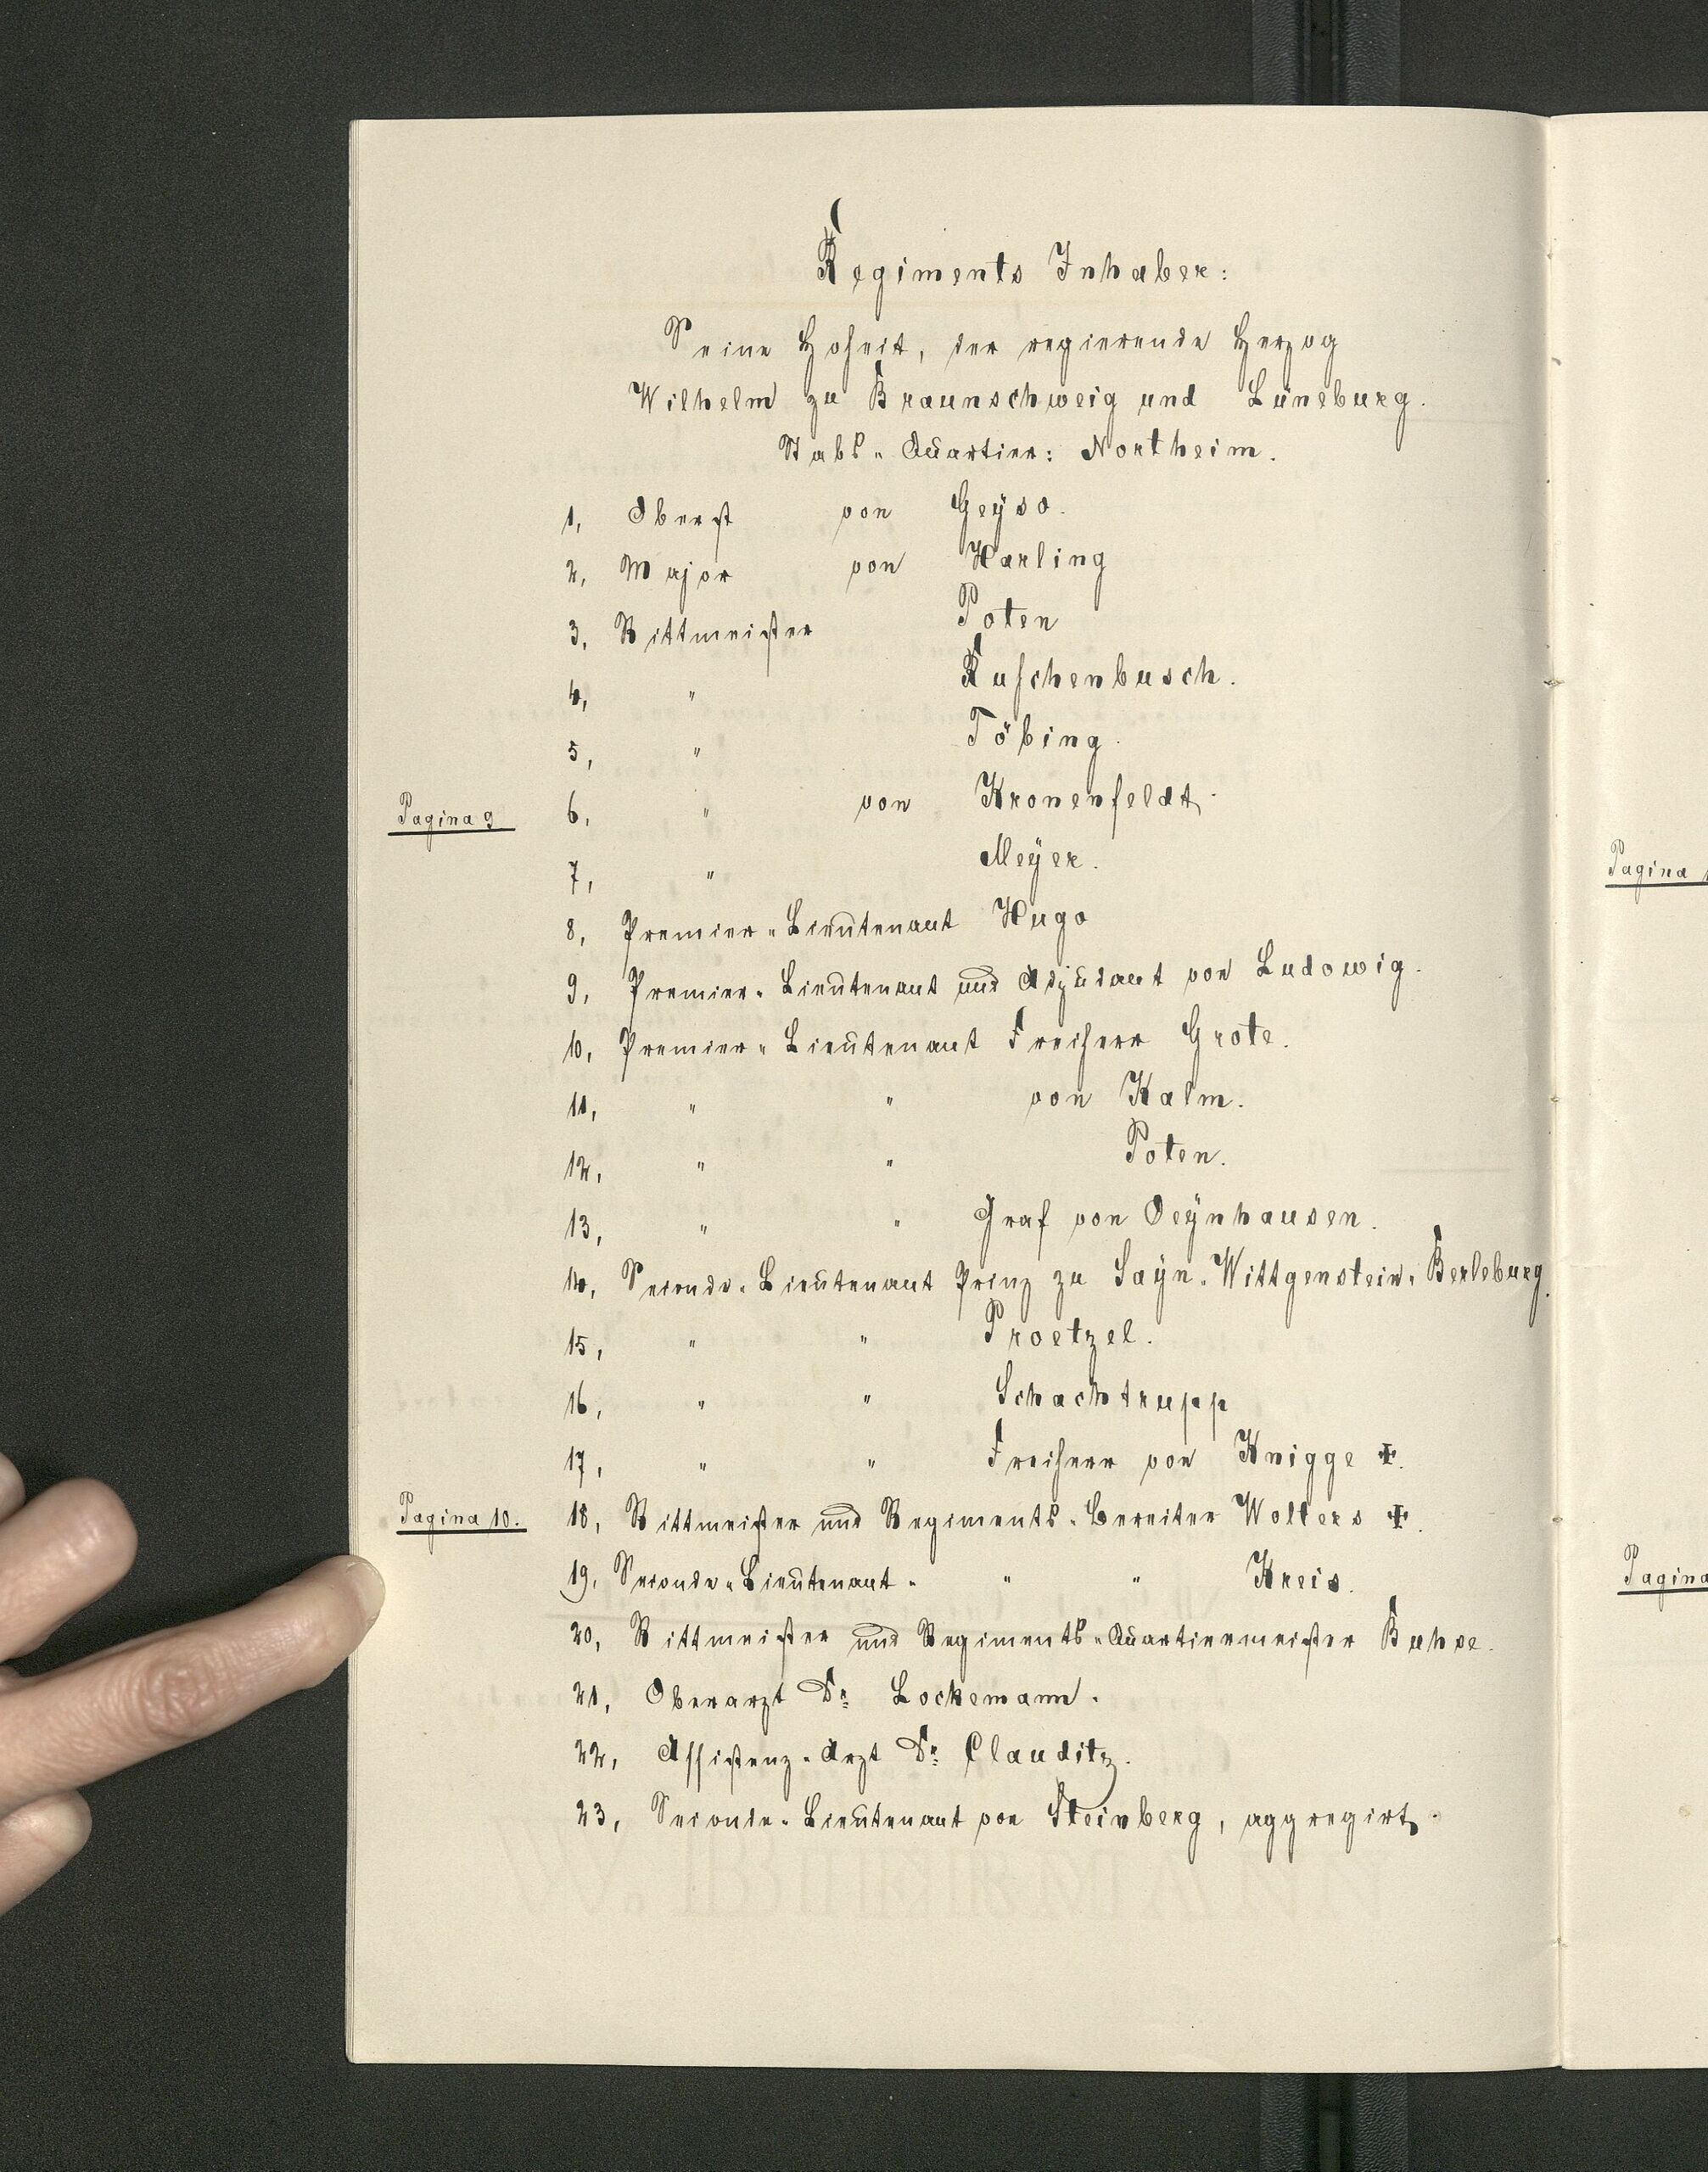 Regiments Inhaber:
Seine Hoheit, der regierende Herzog
Wilhelm zu Braunschweig und Lüneburg.
Stabs-Quartier: Northeim.
1, Oberst von Geÿso.
2, Major von Harling
3, Rittmeister Poten
4, " Ruschenbusch.
5, " Töbing.
Pagina 9 6, " von Kronenfeldt.
7, " Meÿer.
8, Premier-Lieutenant Hugo
9, Premier-Lieutenant und Adjudant von Ludowig.
10, Premier-Lieutenant Freiherr Grote.
11, " " von Kalm.
12, " " Poten.
13, " " Graf von Oeÿnhausen.
14, Seconde-Lieutenant Prinz zu Saÿn-Wittgenstein-Berleburg.
15, " " Proetzel.
16, " " Schachtrupp
17, " " Freiherr von Knigge ✠.
Pagina 10. 18, Rittmeister und Regiments-Bereiter Wolters ✠.
19, Seconde-Lieutenant- " " Kreis.
20, Rittmeister und Regiments-Quartiermeister Buhse.
21, Oberarzt Dr. Lockemann.
22, Assistenz-Arzt Dr. Clauditz.
23, Seconde-Lieutenant von Steinberg, aggregirt.
Pagina
Pagina